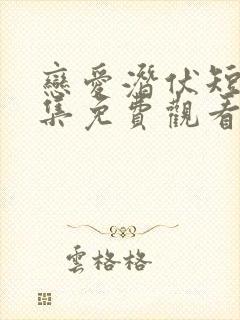 戀愛潛伏短
集免費觀看
雲格格